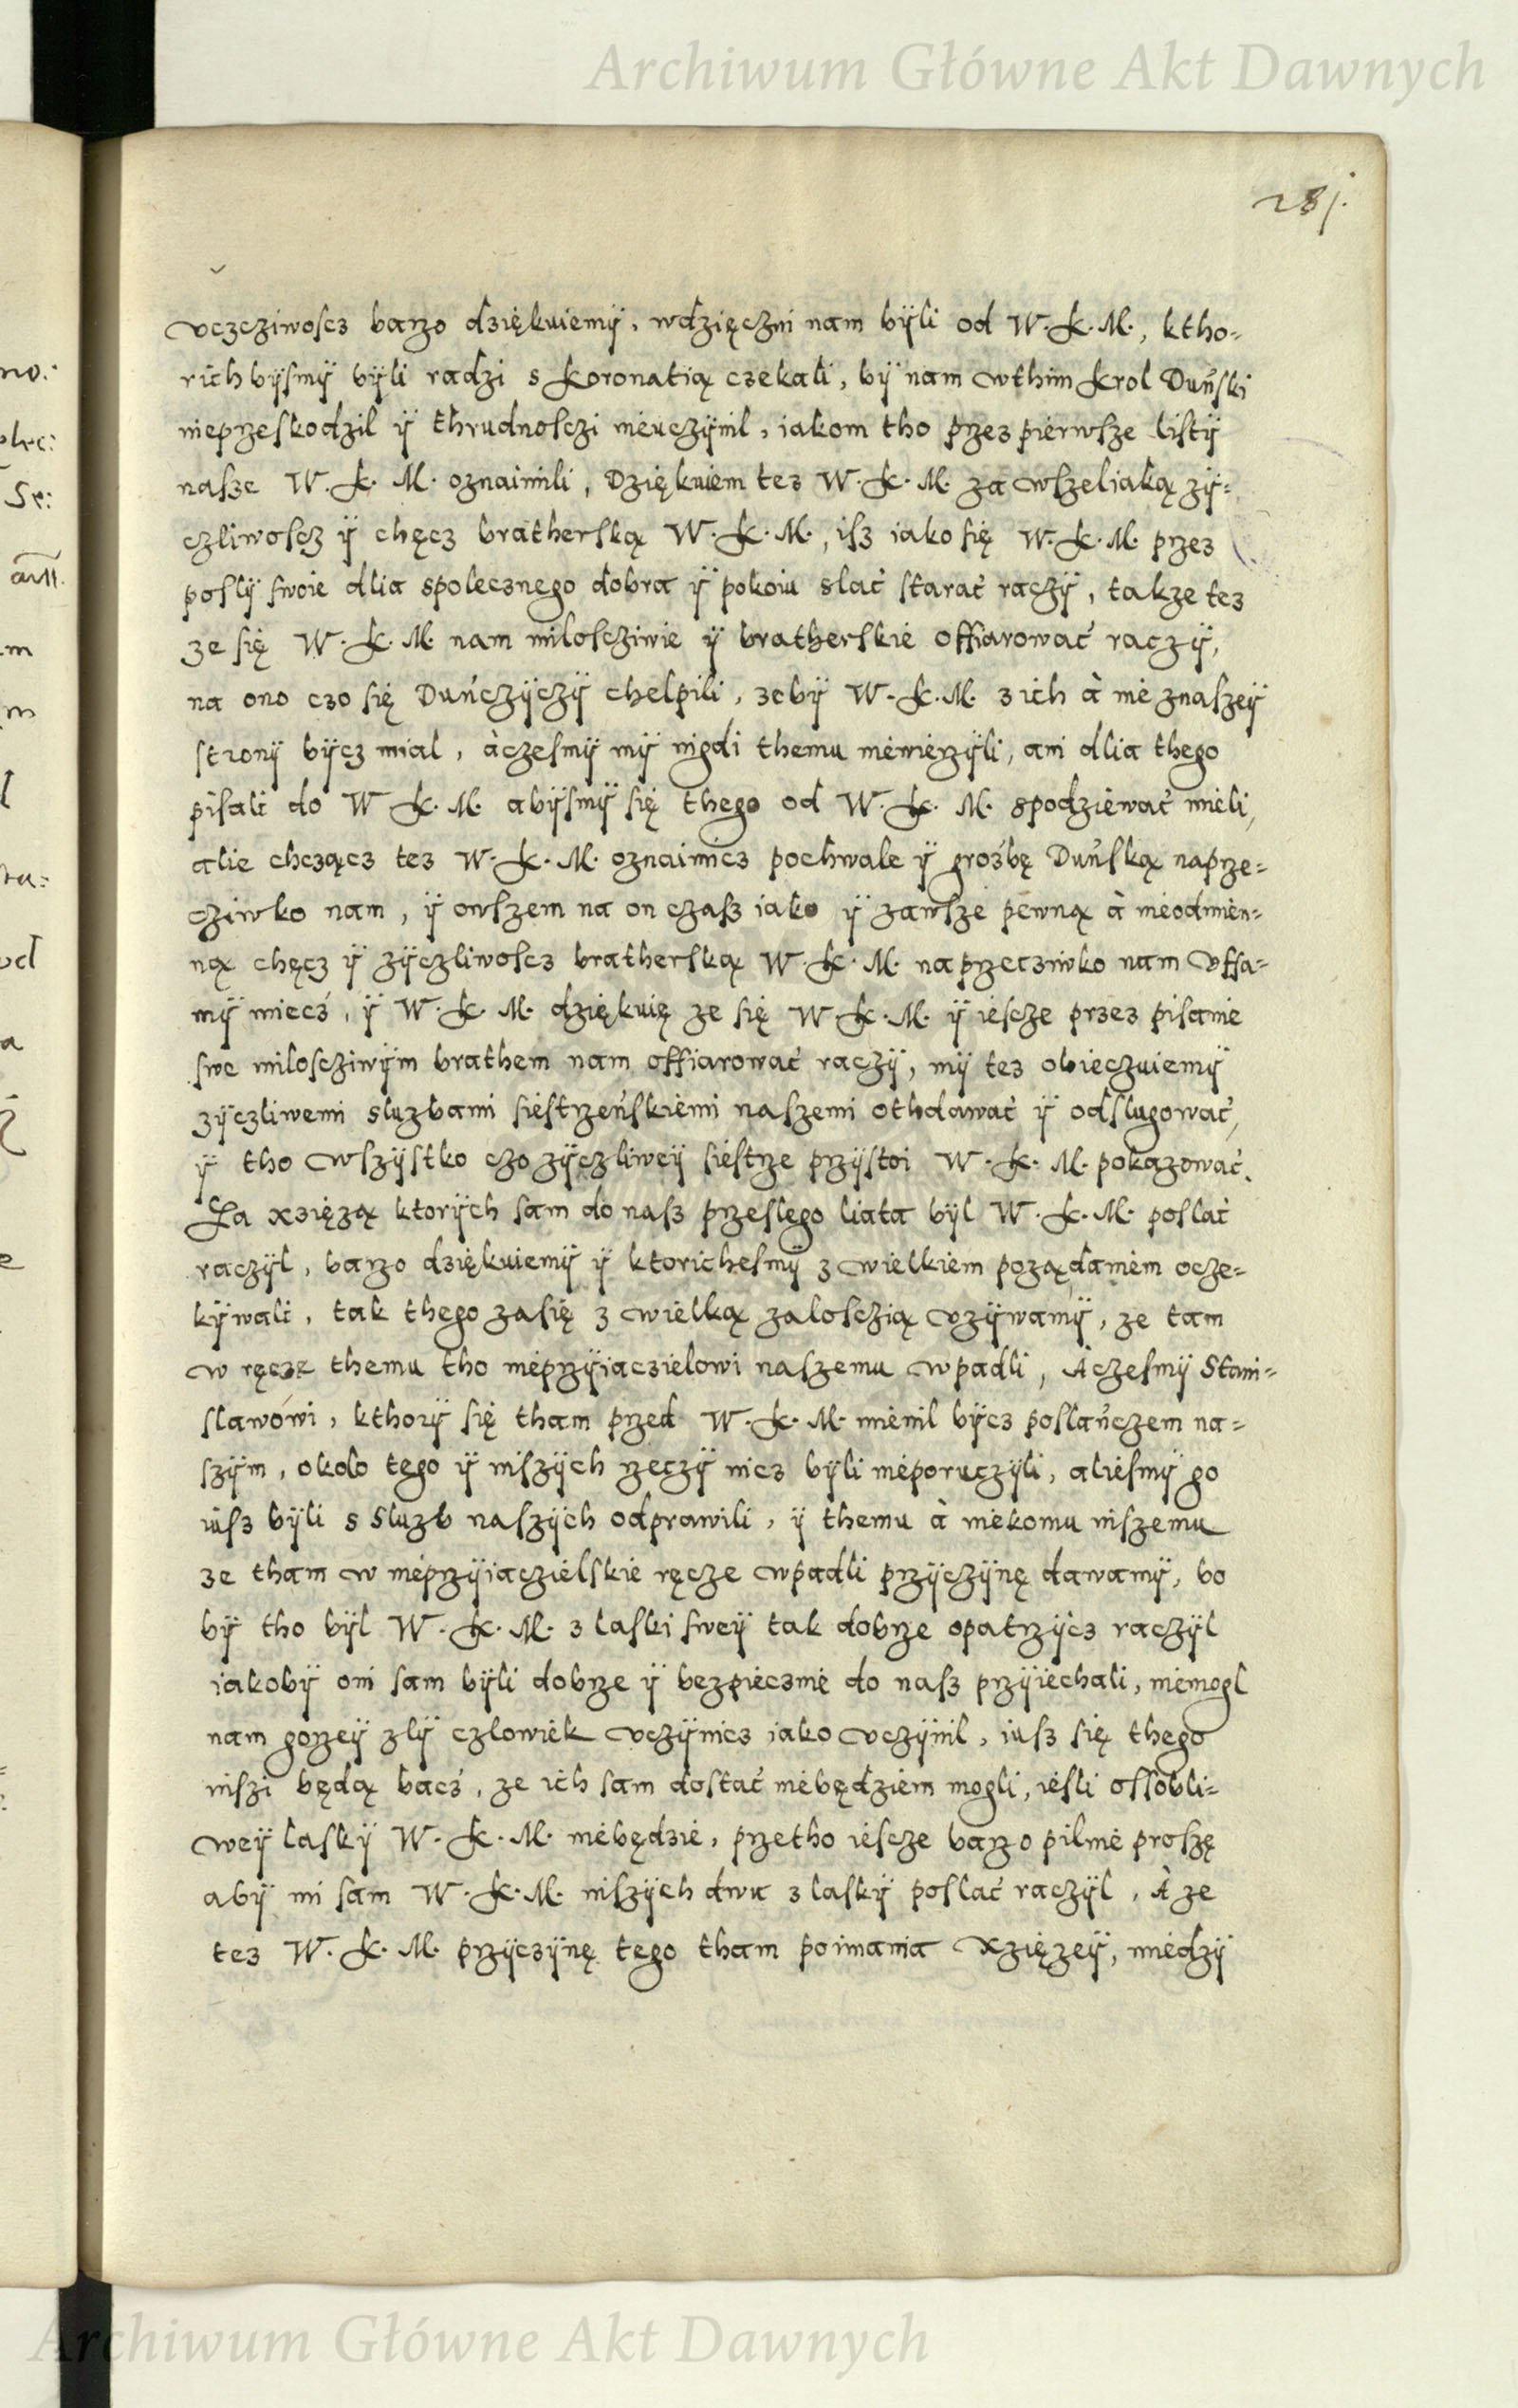 Archiwum Główne Akt Dawnych
281.
vczcziwoscz barzo dziękuiemÿ, wdzięczni nam bÿli od W. K. M., ktho-
rich bÿsmÿ bÿli radzi s koronatią czekali, bÿ nam wthim krol Duński
nieprzeskodzil ÿ thrudnosczi nieuczÿnil, iakom tho przez pierwsze listÿ
nasze W. K. M. oznaimili, Dziękuiem tez W. K. M. za wszeliaką zÿ-
czliwoscz ÿ chęcz bratherską W. K. M., isz iako się W. K. M. przez
poslÿ swoie dlia spolecznego dobra ÿ pokoiu slać starać raczÿ, takze tez
ze się W. K. M. nam miloscziwie ÿ bratherskie offiarować raczÿ,
na ono czo się Duńczÿczÿ chelpili, zebÿ W. K. M. z ich à nie znaszeÿ
stronÿ bÿcz mial, àczesmÿ mÿ nigdi themu niewierzÿli, ani dlia thego
pisali do W K. M. abÿsmÿ się thego od W. K. M. spodziewać mieli,
alie chcząc tez W. K. M. oznaimicz pochwale ÿ grośbę Duńską naprze-
cziwko nam, ÿ owszem na on czasz iako ÿ zawsze pewną à nieodmien-
ną chęcz ÿ zÿczliwoscz bratherską W. K. M. naprzecziwko nam vffa-
mÿ miecź, ÿ W. K. M. dziękuię ze się W. K. M. ÿ iescze przez pisanie
swe miloscziwÿm brathem nam offiarować raczÿ, mÿ tez obieczuiemÿ
zÿczliwemi sluzbami siestrzeńskiemi naszemi othdawać ÿ odslugować,
ÿ tho wszÿstko czo zÿczliweÿ siestrze przÿstoi W. K. M. pokazować.
Za xsięzą ktorÿch sam do nasz przeslego liata bÿl W. K. M. poslać
raczÿl, barzo dziękuiemÿ ÿ ktorichesmÿ z wielkiem poządaniem ocze-
kÿwali, tak thego zasię z wielką zalosczią vzÿwamÿ, ze tam
w ręcze themu tho nieprzÿiaczielowi naszemu wpadli, Aczesmÿ Stani-
slawówi, kthorÿ się tham przed W. K. M. mienil bÿcz poslańczem na-
szÿm, okolo tego ÿ niszÿch rzeczÿ nicz bÿli nieporuczÿli, aliesmÿ go
iusz bÿli s Sluzb naszÿch odprawili, ÿ themu à niekomu niszemu
ze tham w nieprzÿiaczielskie ręcze wpadli przÿczÿnę dawamÿ, bo
bÿ tho bÿl W. K. M. z laski sweÿ tak dobrze opatrzÿcz raczÿl
iakobÿ oni sam bÿli dobrze ÿ bezpiecznie do nasz przÿiechali, niemogl
nam gorzeÿ zlÿ czlowiek vczÿnicz iako vczÿnil, iusz się thego
niszi będą bacź, ze ich sam dostać niebędziem mogli, iesli ossobli-
weÿ laskÿ W. K. M. niebędzie, przetho iescze barzo pilnie proszę
abÿ mi sam W. K. M. niszÿch dwu z laskÿ poslać raczÿl, A ze
tez W. K. M. przÿczÿnę tego tham poimania xzięzeÿ, miedzÿ
Archiwum Główne Akt Dawnych